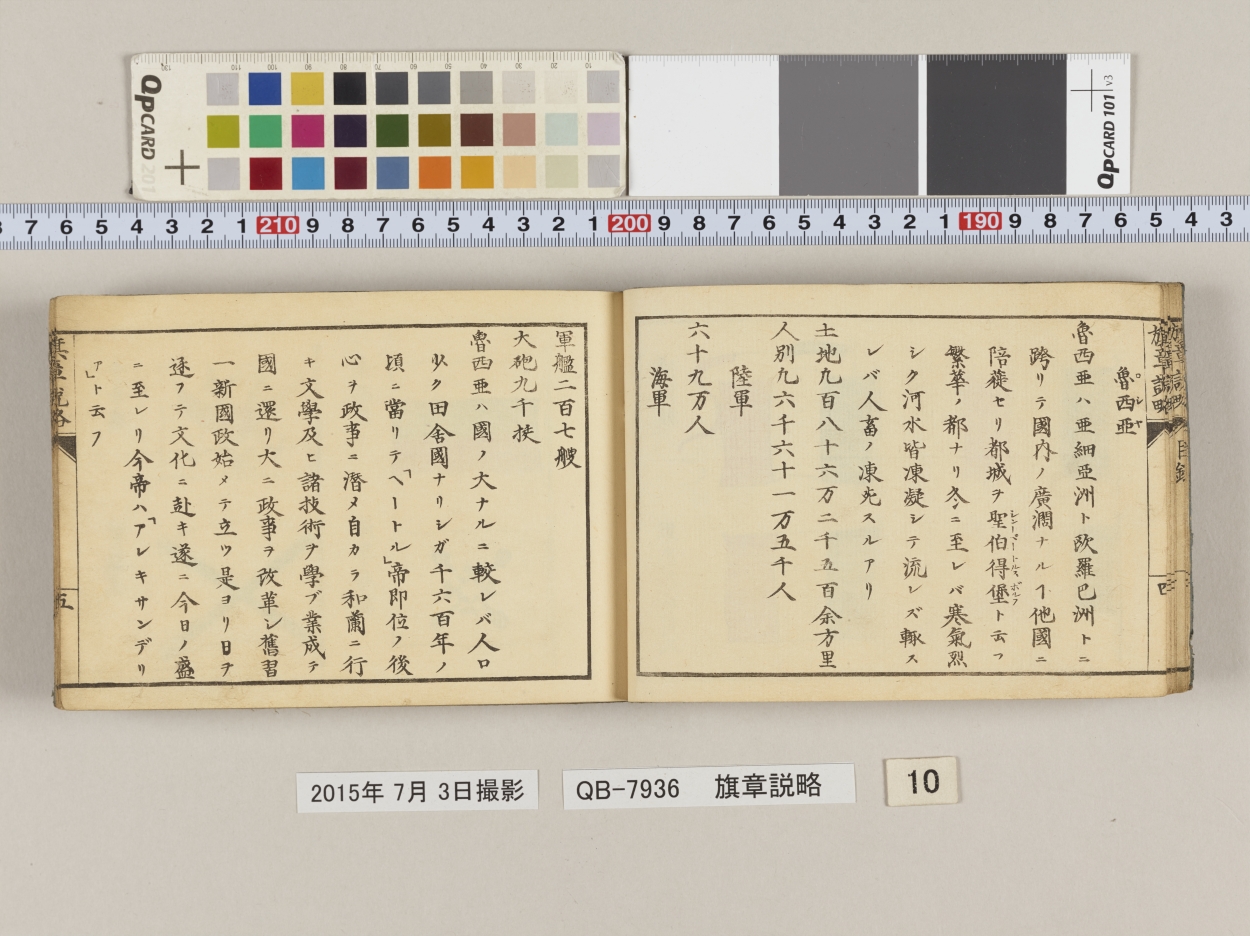 QPCARD 201
130 110 100 90 80 70 60 50 40 30 20 10
QPCARD 101 v3
7 6 5 4 3 2 1 210 9 8 7 6 5 4 3 2 1 200 9 8 7 6 5 4 3 2 1 190 9 8 7 6 5 4 3
旗章説略
目録
旗章説略
四
魯西亜
ロシヤ
魯西亜ハ亜細亞洲ト欧羅巴洲トニ
跨リテ國内ノ廣濶ナルヿ他國ニ
陪蓰セリ都城ヲ聖伯得堡ト云フ
繁華ノ都ナリ冬ニ至レバ寒氣烈
シク河水皆凍凝シテ流レズ輙ス
レバ人畜ノ凍死スルアリ
土地九百八十六万二千五百余方里
人別九六千六十一万五千人
陸軍
六十九万人
海軍
軍艦二百七艘
大砲九千挟
魯西亜ハ國ノ大ナルニ較レバ人口
少ク田舎國ナリシガ千六百年ノ
頃ニ當リテ「ヘートル」帝即位ノ後
心ヲ政事ニ潜メ自カラ和蘭ニ行
キ文學及ヒ諸技術ヲ學ブ業成テ
國ニ還リ大ニ政事ヲ改革シ舊習
一新國政始メテ立ツ是ヨリ日ヲ
逐フテ文化ニ赴キ遂ニ今日ノ盛
ニ至レリ今帝ハ「アレキサンデリ
ア」ト云フ
旗章説略
五
2015年 7月 3日撮影
QB-7936 旗章説略
10